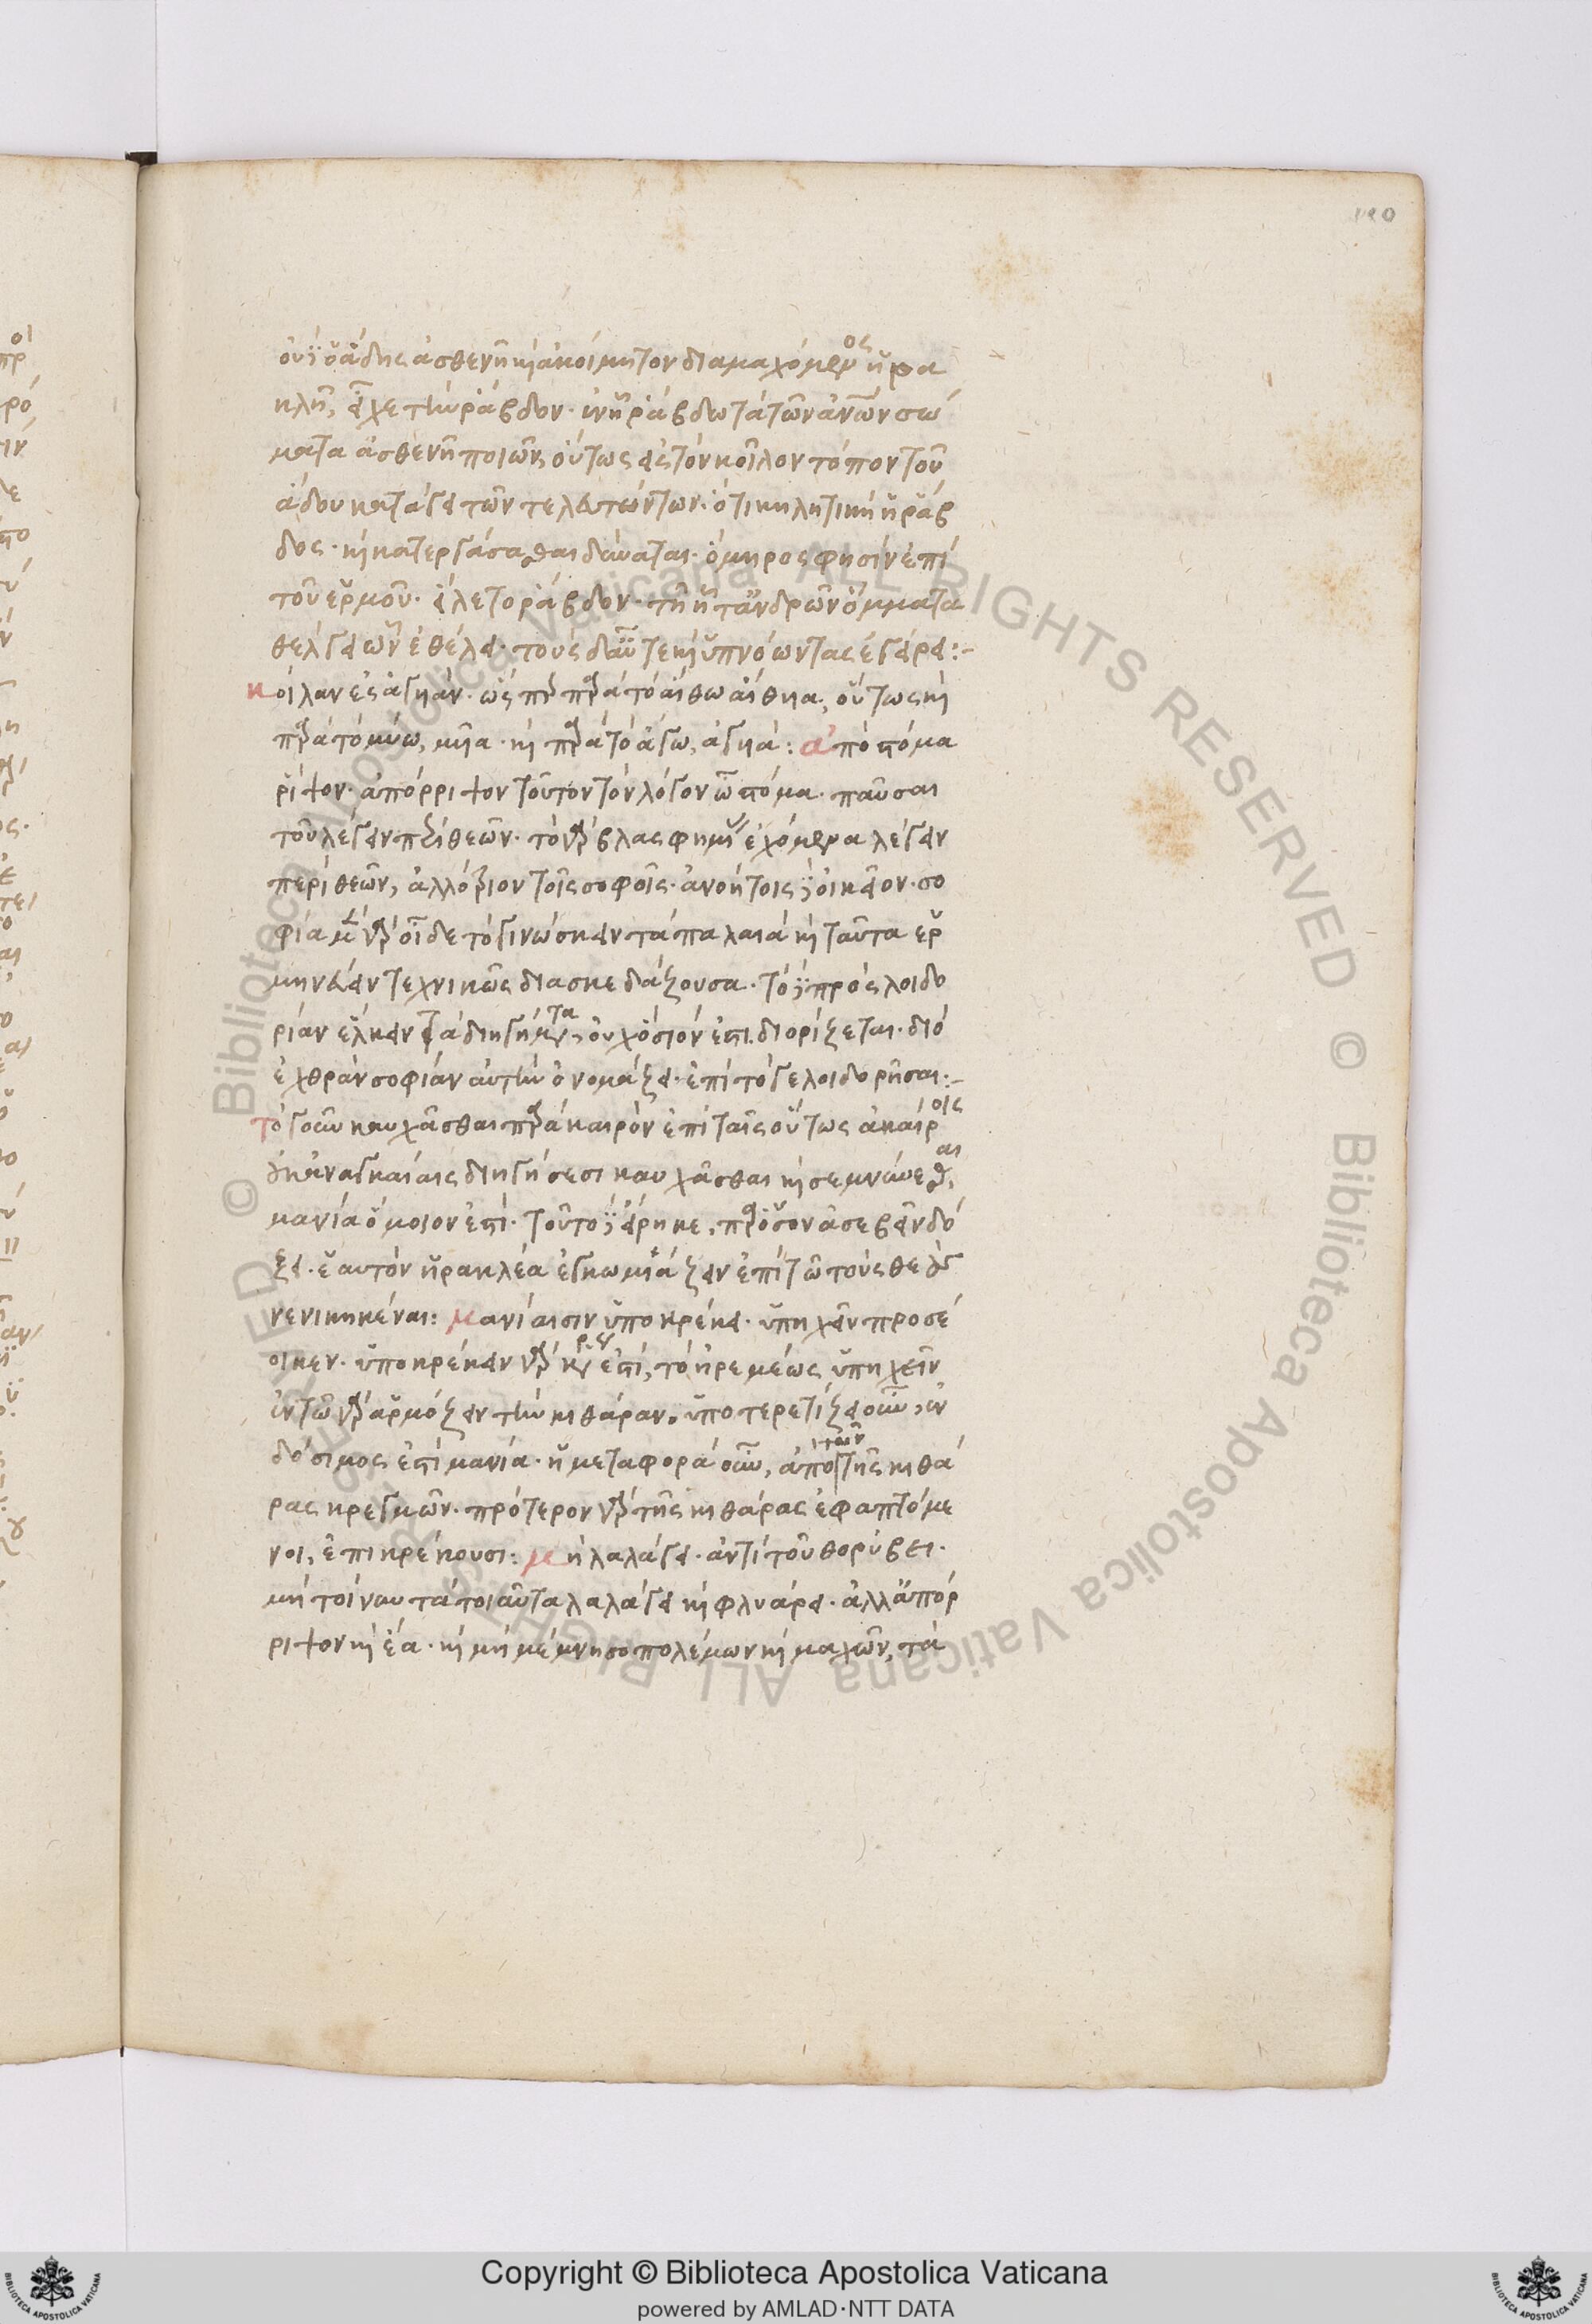 οὐδὲ ὁ ἅδης ἀσθενῆ καὶ ἀκοίμητον διαμαχόμενος ἡρα
κλῆ, εἶχε τὴν ῥάβδον· ἐν ᾗ ῥάβδω τὰ τῶν ἀνῶν σώ
ματα ἀσθενῆ ποιῶν, οὕτως εἰς τὸν κοῖλον τόπον τοῦ
ἅδου κατάγει τῶν τελευτώντων· ὅτι κηλητικὴ ἡ ῥάβ
δος· καὶ κατεργάσασθαι δύναται· ὅμηρος φησὶν ἐπὶ
τοῦ ἑρμοῦ· εἵλετο ῥάβδον· τῆ τ' ἀνδρῶν ὄμματα
θέλγει ὧν ἐθέλει· τοὺς δ' αὖτε καὶ ὑπνώοντας ἐγείρει:-
κοίλαν ἐς ἀγυιάν· ὡς παρὰ τὸ αἴθω αἴθυια, οὕτως καὶ
παρὰ τὸ μύω, μυῖα· καὶ παρὰ τὸ ἄγω, ἀγυιά: ἀπό στόμα
ῥίψον· ἀπόρριψον τοῦτον τὸν λόγον ὦ στόμα· παῦσαι
τοῦ λέγειν περὶ θεῶν· τὸ γὰρ βλασφημίας ἐχόμενα λέγειν
περὶ θεῶν, ἀλλότριον τοῖς σοφοῖς· ἀνοήτοις δὲ οἰκεῖον· σο
φία μὲν γὰρ οἶδε τὸ γινώσκειν τὰ παλαιὰ καὶ ταῦτα ἑρ
μηνεύειν τεχνικῶς διασκεδάζουσα· τὸ δὲ πρὸς λοιδο
ρίαν ἕλκειν τὰ διηγήματα, οὐχ ὅσιόν ἐστι διορίζεται· διὸ
ἐχθρὰν σοφίαν αὐτὴν ὀνομάζει· ἐπὶ τό γε λοιδορῆσαι:-
τὸ γοῦν καυχᾶσθαι παρὰ καιρὸν ἐπὶ ταῖς οὕτως ἀκαίροις
ἀναγκαίαις διηγήσεσι καυχᾶσθαι καὶ σεμνύνεσθαι,
μανία ὅμοιον ἐστί· τοῦτο δὲ εἴρηκε, παρόσον ἀσεβεῖν δό
ξει· ἑαυτὸν ἡρακλέα ἐγκωμιάζειν ἐπὶ τῶ τοὺς θεοὺς
νενικηκέναι: μανίαισιν ὑποκρέκει· ὑπηχεῖν προσέ
οικεν· ὑποκρέκειν γὰρ κυρίως ἐστί, τὸ ἠρεμέως ὑπηχεῖν
ἐν τῶ γὰρ ἁρμόζειν τὴν κιθάραν, ὑποτερετίζει οὖν, ἐν
δόσιμος ἐστὶ μανία· ἡ μεταφορὰ οὖν, ἀπὸ τῶν τῆς κιθά
ρας κρεγμῶν· πρότερον γὰρ τῆς κιθάρας ἐφαπτόμε
νοι, ἐπικρέκουσι: μὴ λαλάγει· ἀντὶ τοῦ θορύβει·
μὴ τοίνυν τὰ τοιαῦτα λαλάγει καὶ φλυάρει· ἀλλ' ἀπόρ
ριψον καὶ ἔα· καὶ μὴ μέμνησο πολέμων καὶ μαχῶν, τὰ